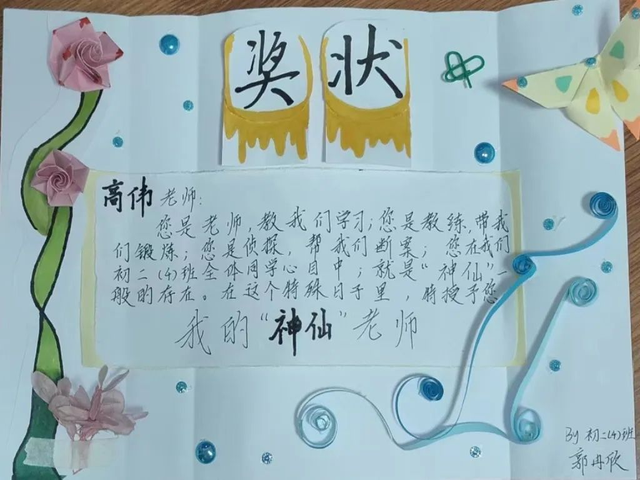 奖状
高伟老师:
您是老师,教我们学习;您是教练,带我
们锻炼;您是侦探,帮我们断案;您在我们
初二(4)班全体同学心目中;就是“神仙”一
般的存在。在这个特殊日子里,特授予您
我的“神仙”老师
By 初二(4)班
郭冉欣